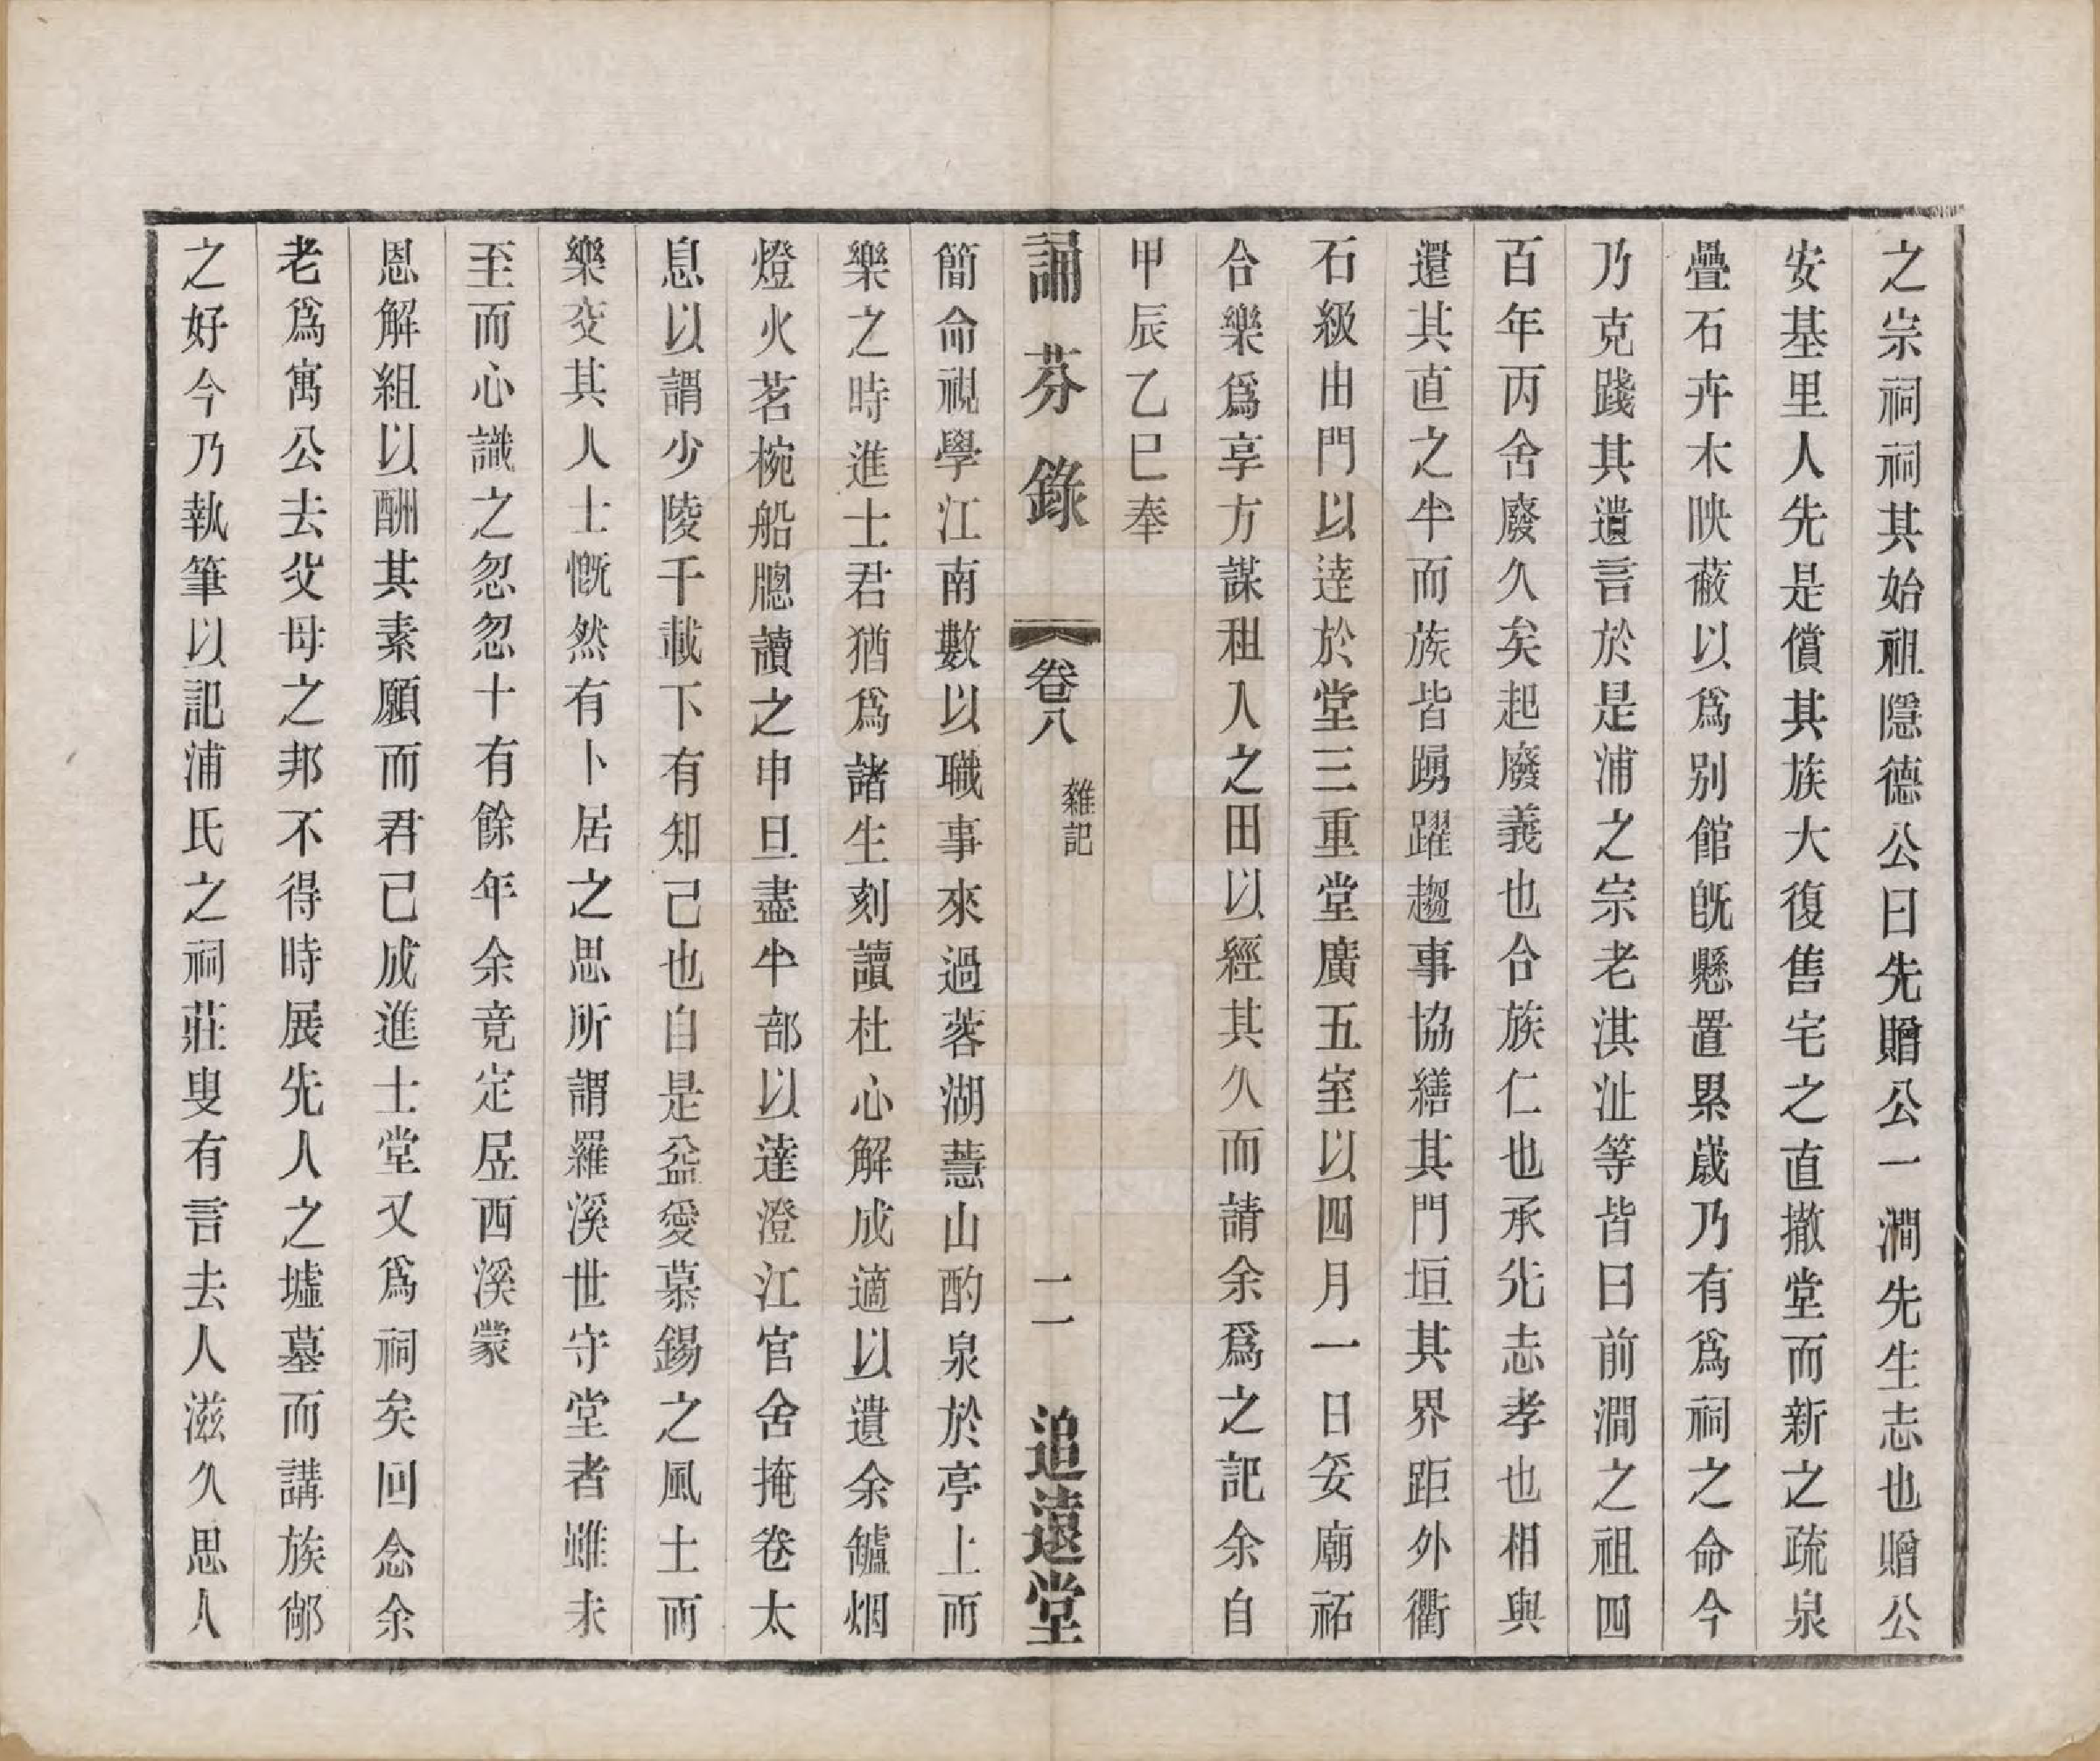 之宗祠祠其始祖隱德公曰先贈公一澗先生志也贈公
安基里人先是償其族大復售宅之直撤堂而新之疏泉
疊石卉木映蔽以爲別館旣懸置累歲乃有爲祠之命今
乃克踐其遺言於是浦之宗老淇沚等皆曰前澗之祖四
百年丙舍廢久矣起廢義也合族仁也承先志孝也相與
還其直之半而族皆踴躍趨事協繕其門垣其界距外衢
石級由門以達於堂三重堂廣五室以四月一日妥廟祏
合樂爲享方謀租人之田以經其久而請余爲之記余自
甲辰乙巳奉
誦芬錄 卷八 雜記 二 追遠堂
簡命視學江南數以職事來過蓉湖蕙山酌泉於亭上而
樂之時進士君猶爲諸生刻讀杜心解成適以遺余罏烟
燈火茗椀船牕讀之申旦盡半部以達澄江官舍掩卷太
息以謂少陵千載下有知己也自是益愛慕錫之風土而
樂交其人士慨然有卜居之思所謂羅溪世守堂者雖未
至而心識之忽忽十有餘年余竟定居西溪蒙
恩解組以酬其素願而君已成進士堂又爲祠矣回念余
老爲寓公去父母之邦不得時展先人之墟墓而講族鄰
之好今乃執筆以記浦氏之祠莊叟有言去人滋久思人